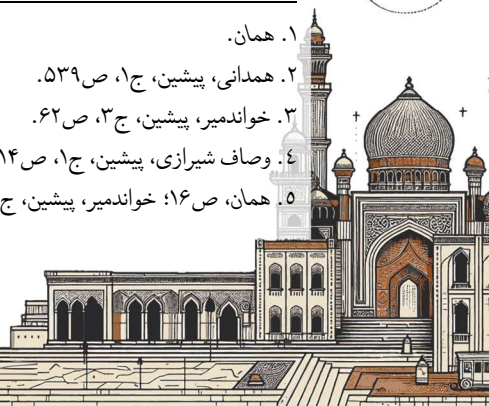 ۱. همان.
۲. همدانی، پیشین، ج۱، ص۵۳۹.
۳. خواندمیر، پیشین، ج۳، ص۶۲.
٤. وصاف شیرازی، پیشین، ج۱، ص۱۴
٥. همان، ص۱۶؛ خواندمیر، پیشین، ج